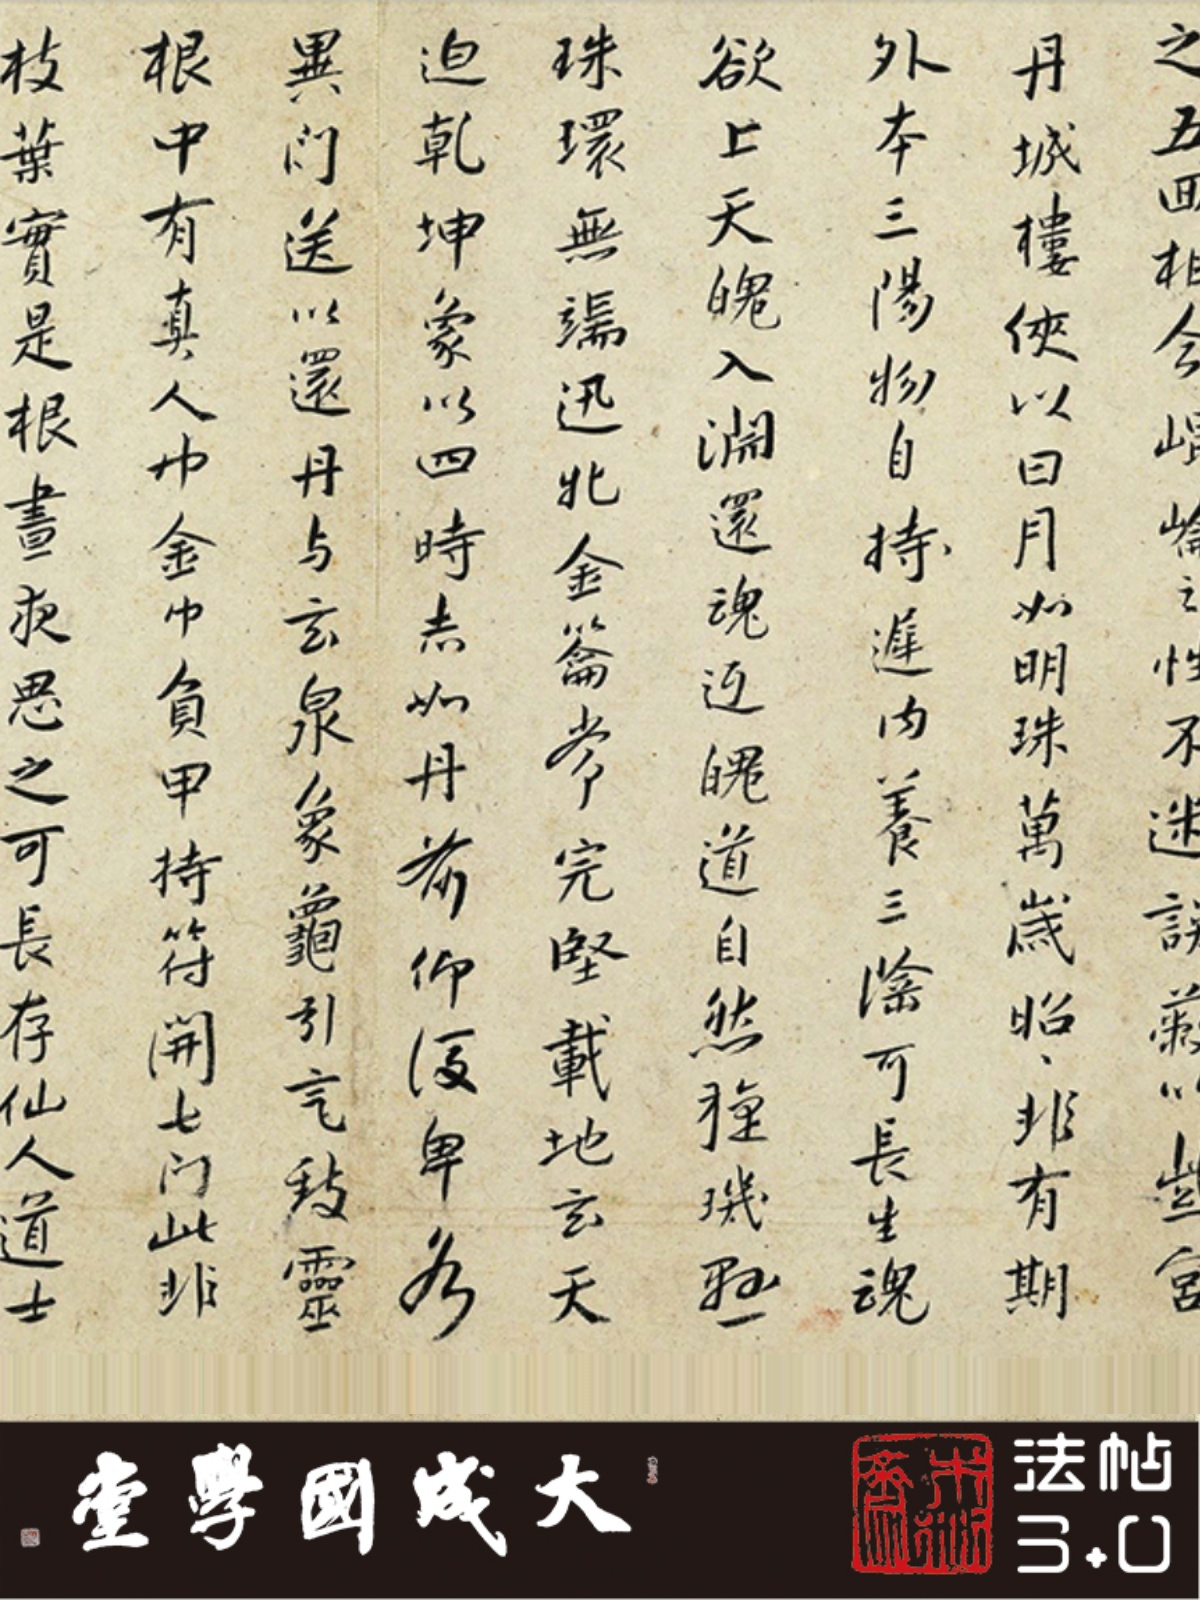 之五四相令崐崘之性不迷誤蔽以紫宮
丹城樓俠以日月如明珠萬歲昭、非有期
外本三陽物自持遲内養三隂可長生魂
欲上天魄入淵還魂返魄道自然㨂璣懸
珠環無端迅牝金籥常完堅載地玄天
迫乾坤象以四時赤如丹前仰後卑各
異門送以還丹与玄泉象龜引氣致靈
根中有真人巾金巾負甲持符開七門此非
枝葉實是根晝夜思之可長存仙人道士
大成國學堂
法帖
3.0